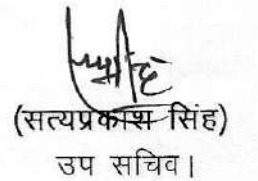 (सत्यप्रकाश सिंह)
उप सचिव।